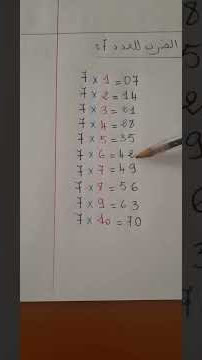 الضرب للعدد 7:
7 × 1 = 07
7 × 2 = 14
7 × 3 = 21
7 × 4 = 28
7 × 5 = 35
7 × 6 = 42
7 × 7 = 49
7 × 8 = 56
7 × 9 = 63
7 × 10 = 70